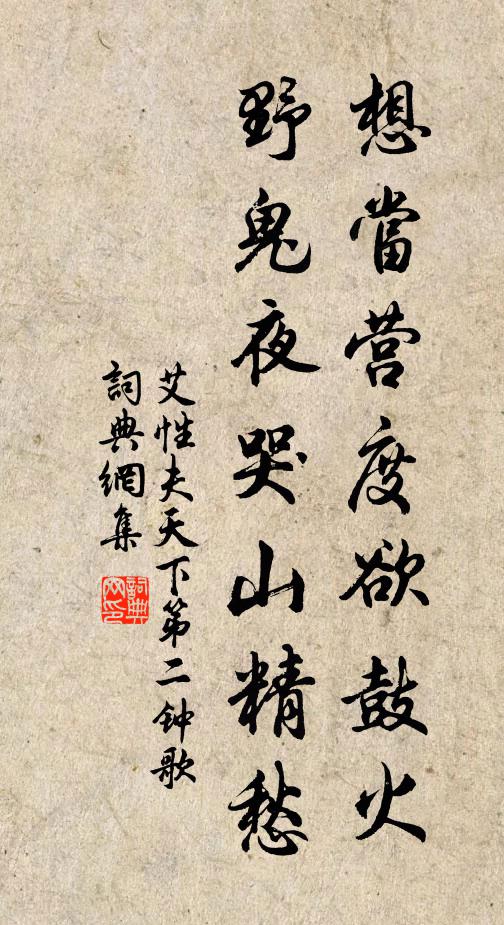 想當营度欲鼓火
野鬼夜哭山精愁
艾性夫天下第二钟歌
詞典網集
詞典
网印